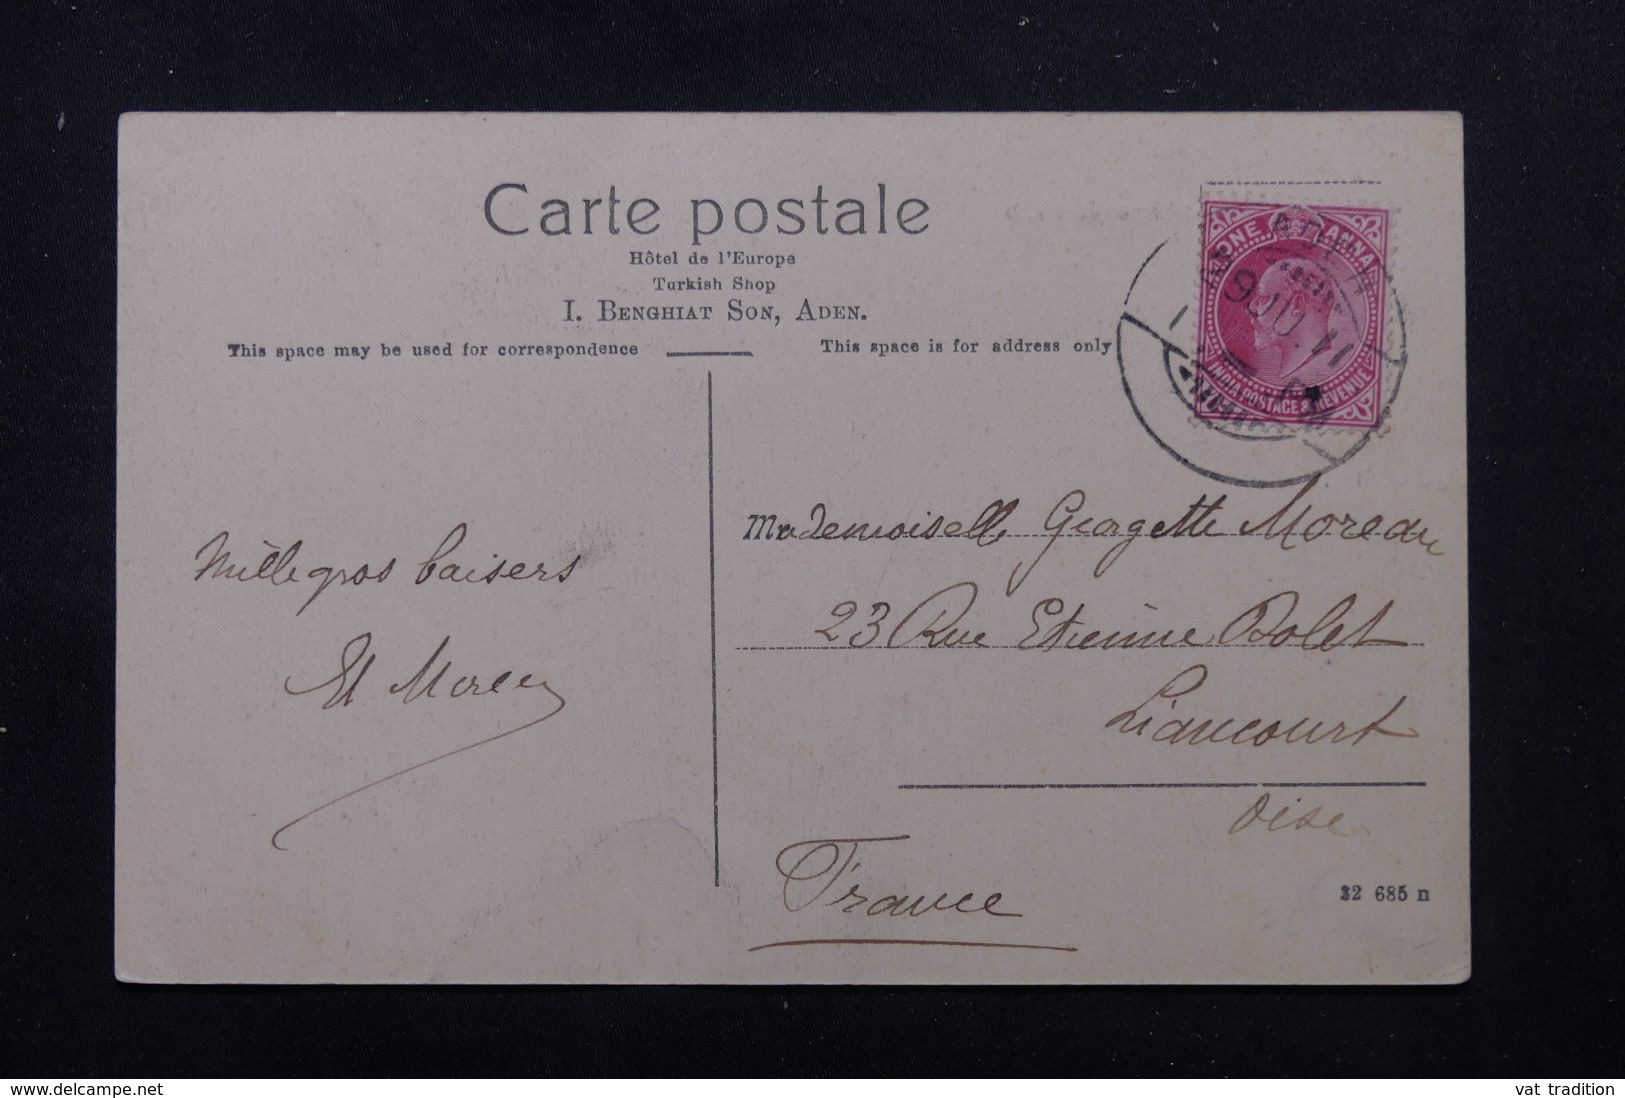 Carte postale
Hôtel de l'Europe
Turkish Shop
I. BENGHIAT SON, ADEN.
This space may be used for correspondence
This space is for address only
ONE ANNA
INDIA POSTAGE & REVENUE
Mademoiselle Georgette Moreau
23 Rue Etienne Dolet
Liancourt
Oise
France
Mille gros baisers
Moreau
32 685 n
www.delcampe.net
vat tradition